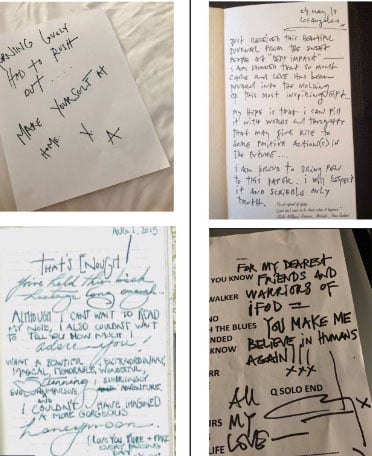 MORNING LOVELY
HAD TO RUSH
OUT ....
MAKE YOURSELF AT
HOME X
A
24 MAY/13
LOS ANGELES
JUST RECEIVED THIS BEAUTIFUL
JOURNAL FROM THE SWEET
PEOPLE AT "DEEP IMPACT"
I AM STUNNED THAT SO MUCH
CARE AND LOVE HAS BEEN
POURED INTO THE MAKING
OF THIS MOST INSPIRING GIFT.
MY HOPE IS THAT I CAN FILL
IT WITH WORDS AND THOUGHTS
THAT MAY GIVE RISE TO
SOME POSITIVE ACTION(S) IN
THE FUTURE...
I AM PROUD TO BRING PEN
TO THIS PAPER. I WILL RESPECT
IT AND SCRIBBLE ONLY
TRUTH.
AUG 1, 2015
THAT'S ENOUGH!
You've held this back
long enough
ALTHOUGH I CAN'T WAIT TO READ
MY NOTE, I ALSO COULDN'T WAIT
TO TELL YOU HOW MUCH I
adore you!
WHAT A BEAUTIFUL, EXTRAORDINARY,
MAGICAL, MEMORABLE, WONDERFUL,
Stunning, SURPRISINGLY
ADVENTURE.
AND
I COULDN'T HAVE IMAGINED
A MORE GORGEOUS
honeymoon
I LOVE YOU MORE + MORE
EVERY PASSING
DAY
FOR MY DEAREST
YOU KNOW FRIENDS AND
WALKER WARRIORS OF
IFOD =
N THE BLUES YOU MAKE ME
NDED BELIEVE IN HUMANS
KNOW AGAIN!!!
RR XXX
Q SOLO END
All X
IRS MY
LIFE LOVE